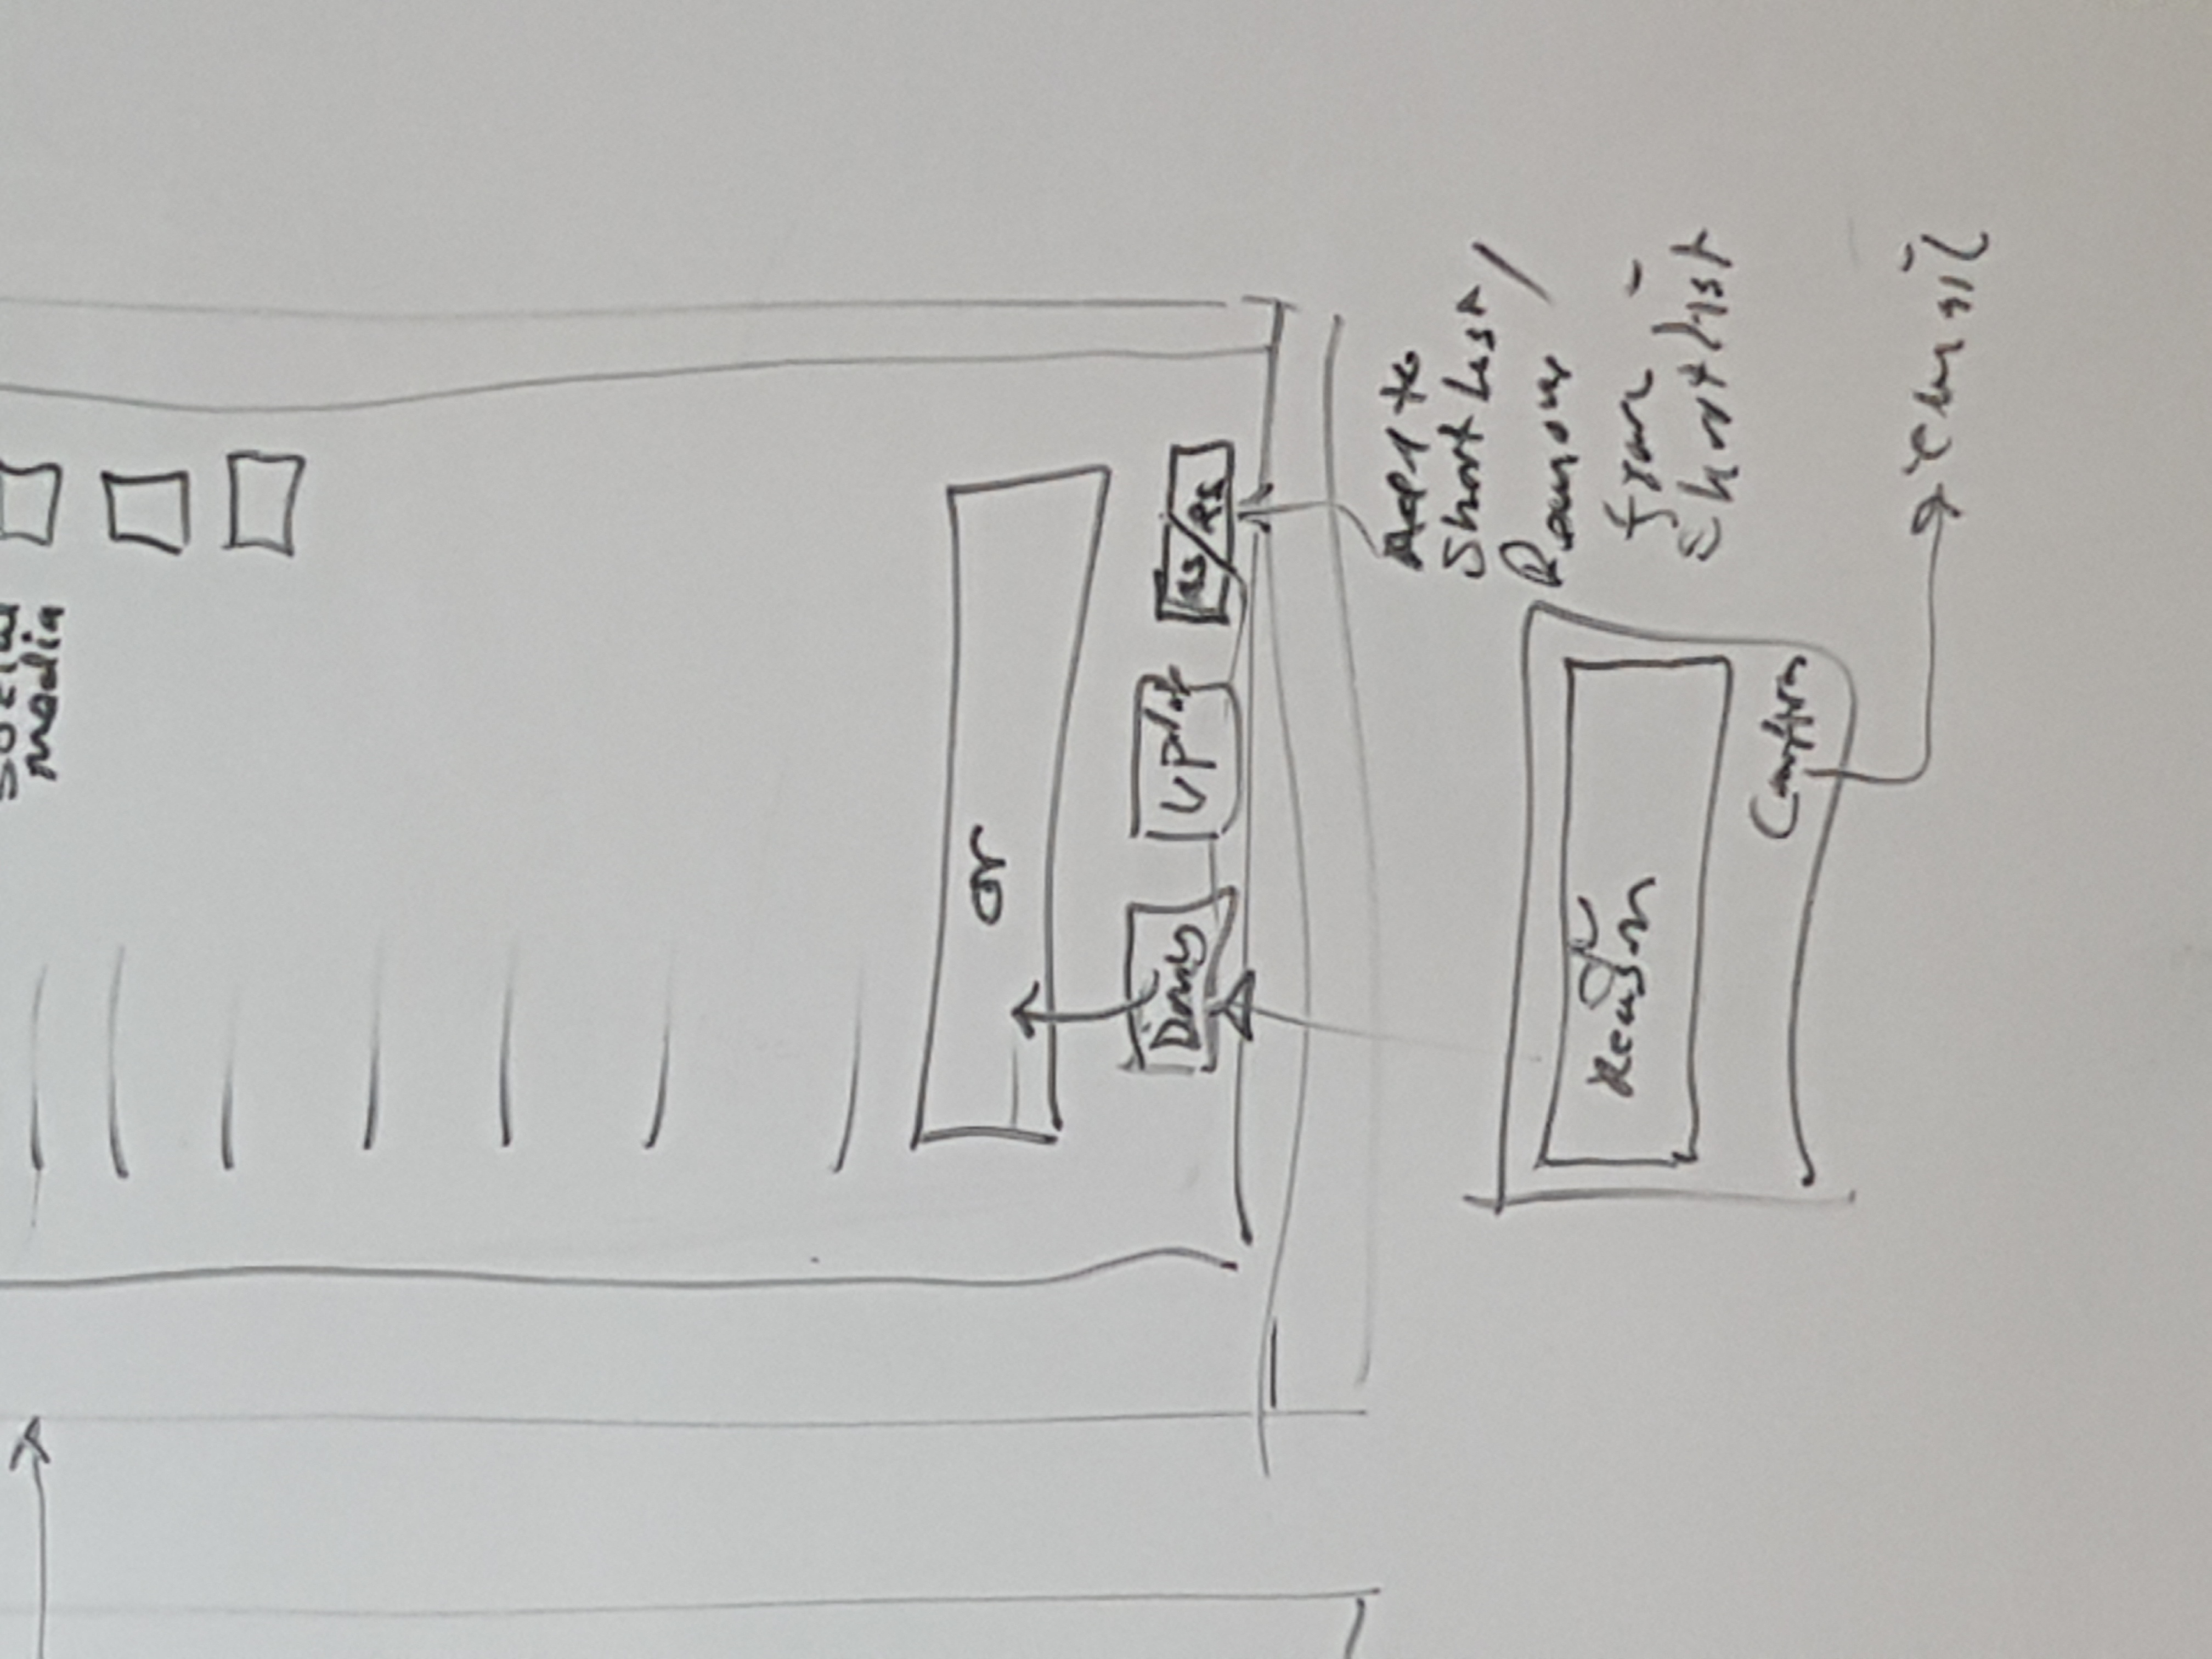 Social
Media
or
Deny
Update
AS/RS
Add to
Short List /
Remove
from
Shortlist
Reason
Confirm
email